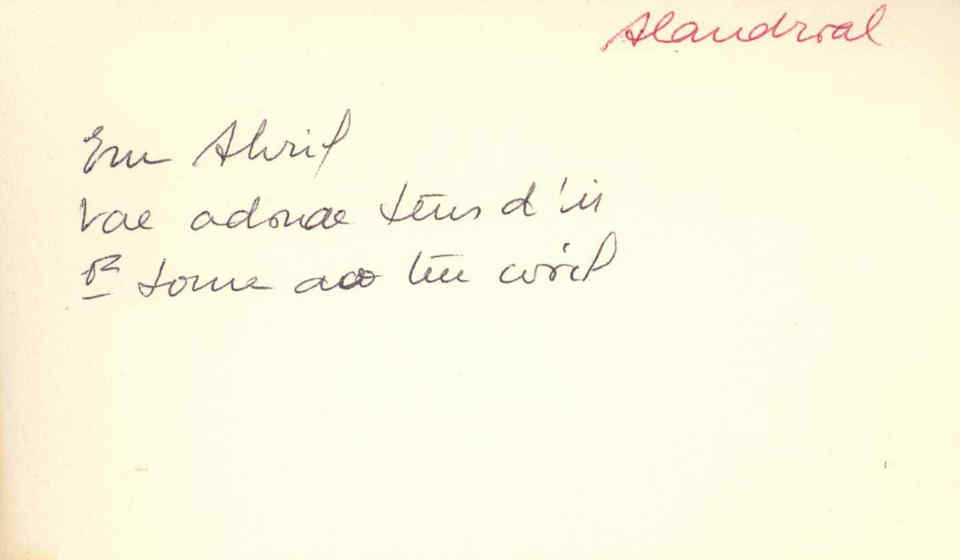 Alandroal
Em Abril
vae adonde tens d'ir
torna ao teu covil